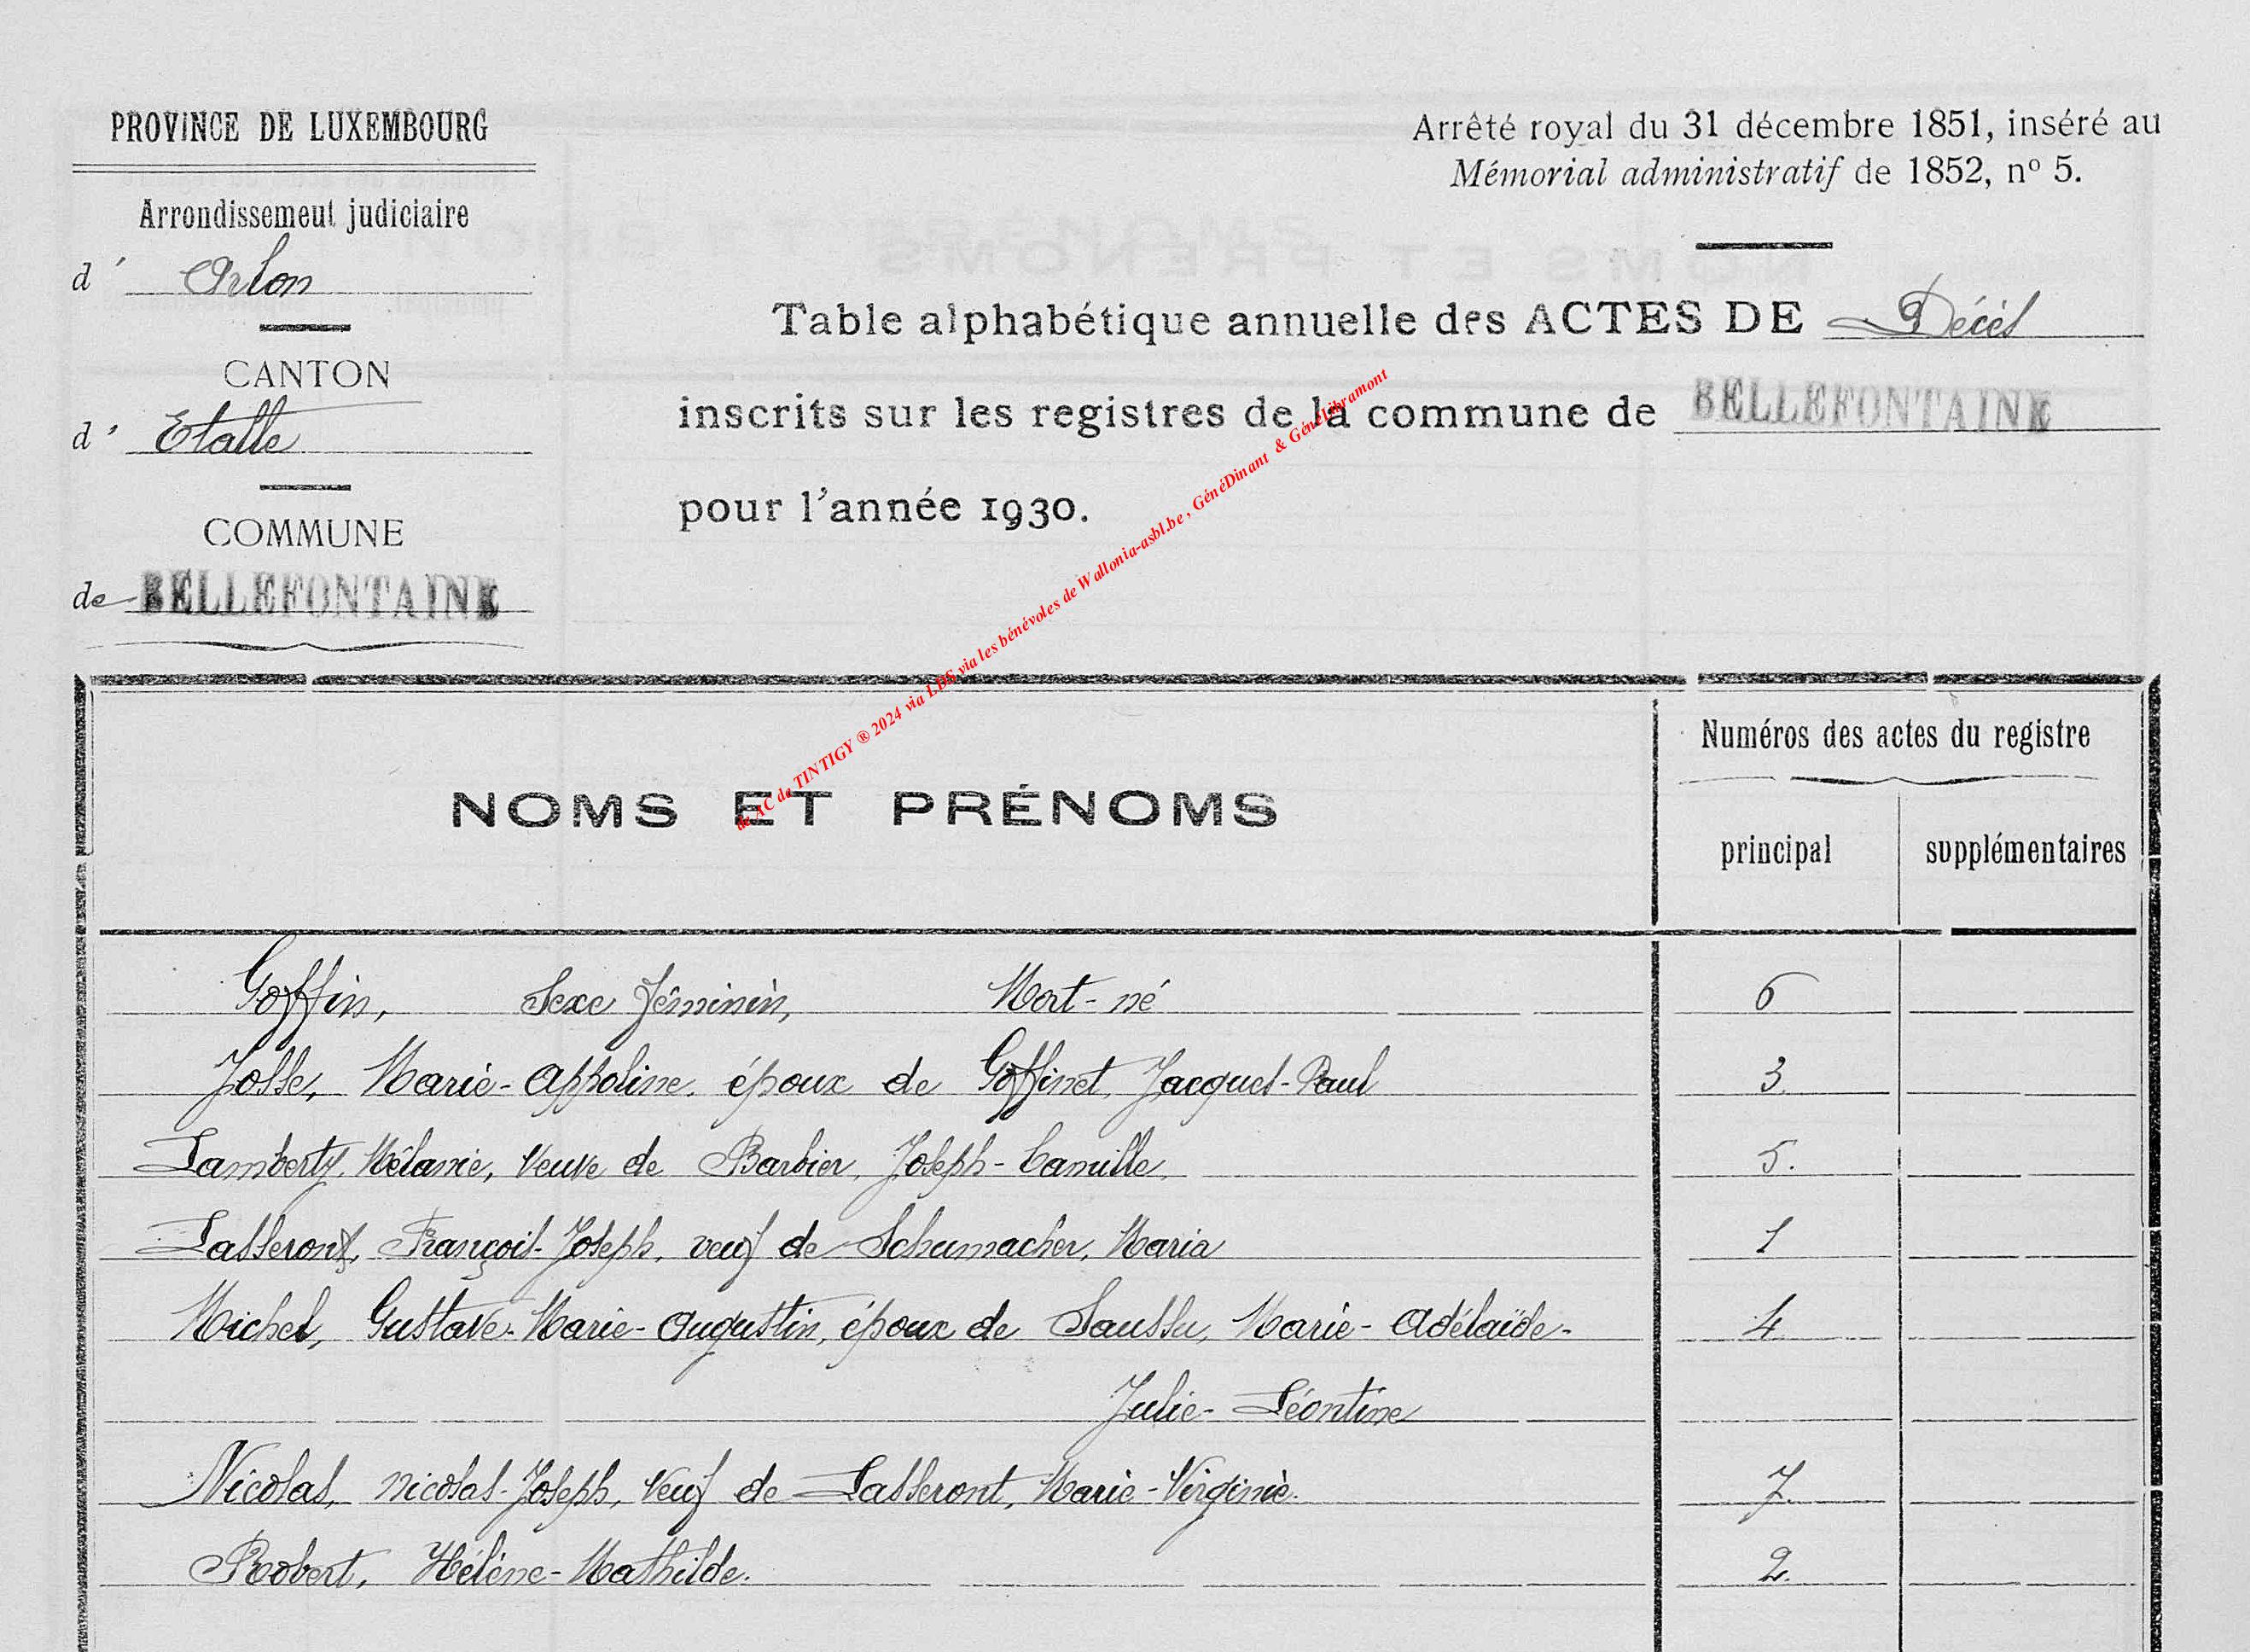 PROVINCE DE LUXEMBOURG
Arrondissement judiciaire
d' Arlon
CANTON
d' Etalle
COMMUNE
de BELLEFONTAINE
Arrêté royal du 31 décembre 1851, inséré au
Mémorial administratif de 1852, nº 5.
Table alphabétique annuelle des ACTES DE Décès
inscrits sur les registres de la commune de BELLEFONTAINE
pour l'année 1930.
de AC de TINTIGY ® 2024 via LDS via les bénévoles de Wallonia-asbl.be , GénéDinant & Génélibramont
NOMS ET PRÉNOMS
Numéros des actes du registre
principal supplémentaires
Goffin, Sexe féminin, Mort-né 6
Josse, Marie-Appoline, époux de Goffinet, Jacques-Paul 3.
Lamberty, Mélanie, Veuve de Barbier, Joseph-Camille, 5.
Lasseront, François-Joseph, veuf de Schumacher, Maria 1
Michel, Gustave-Marie-Augustin, époux de Saussu, Marie-Adélaïde- 4
Julie-Léontine
Nicolas, Nicolas-Joseph, Veuf de Lasseront, Marie-Virginie. 7.
Robert, Hélène-Mathilde. 2.